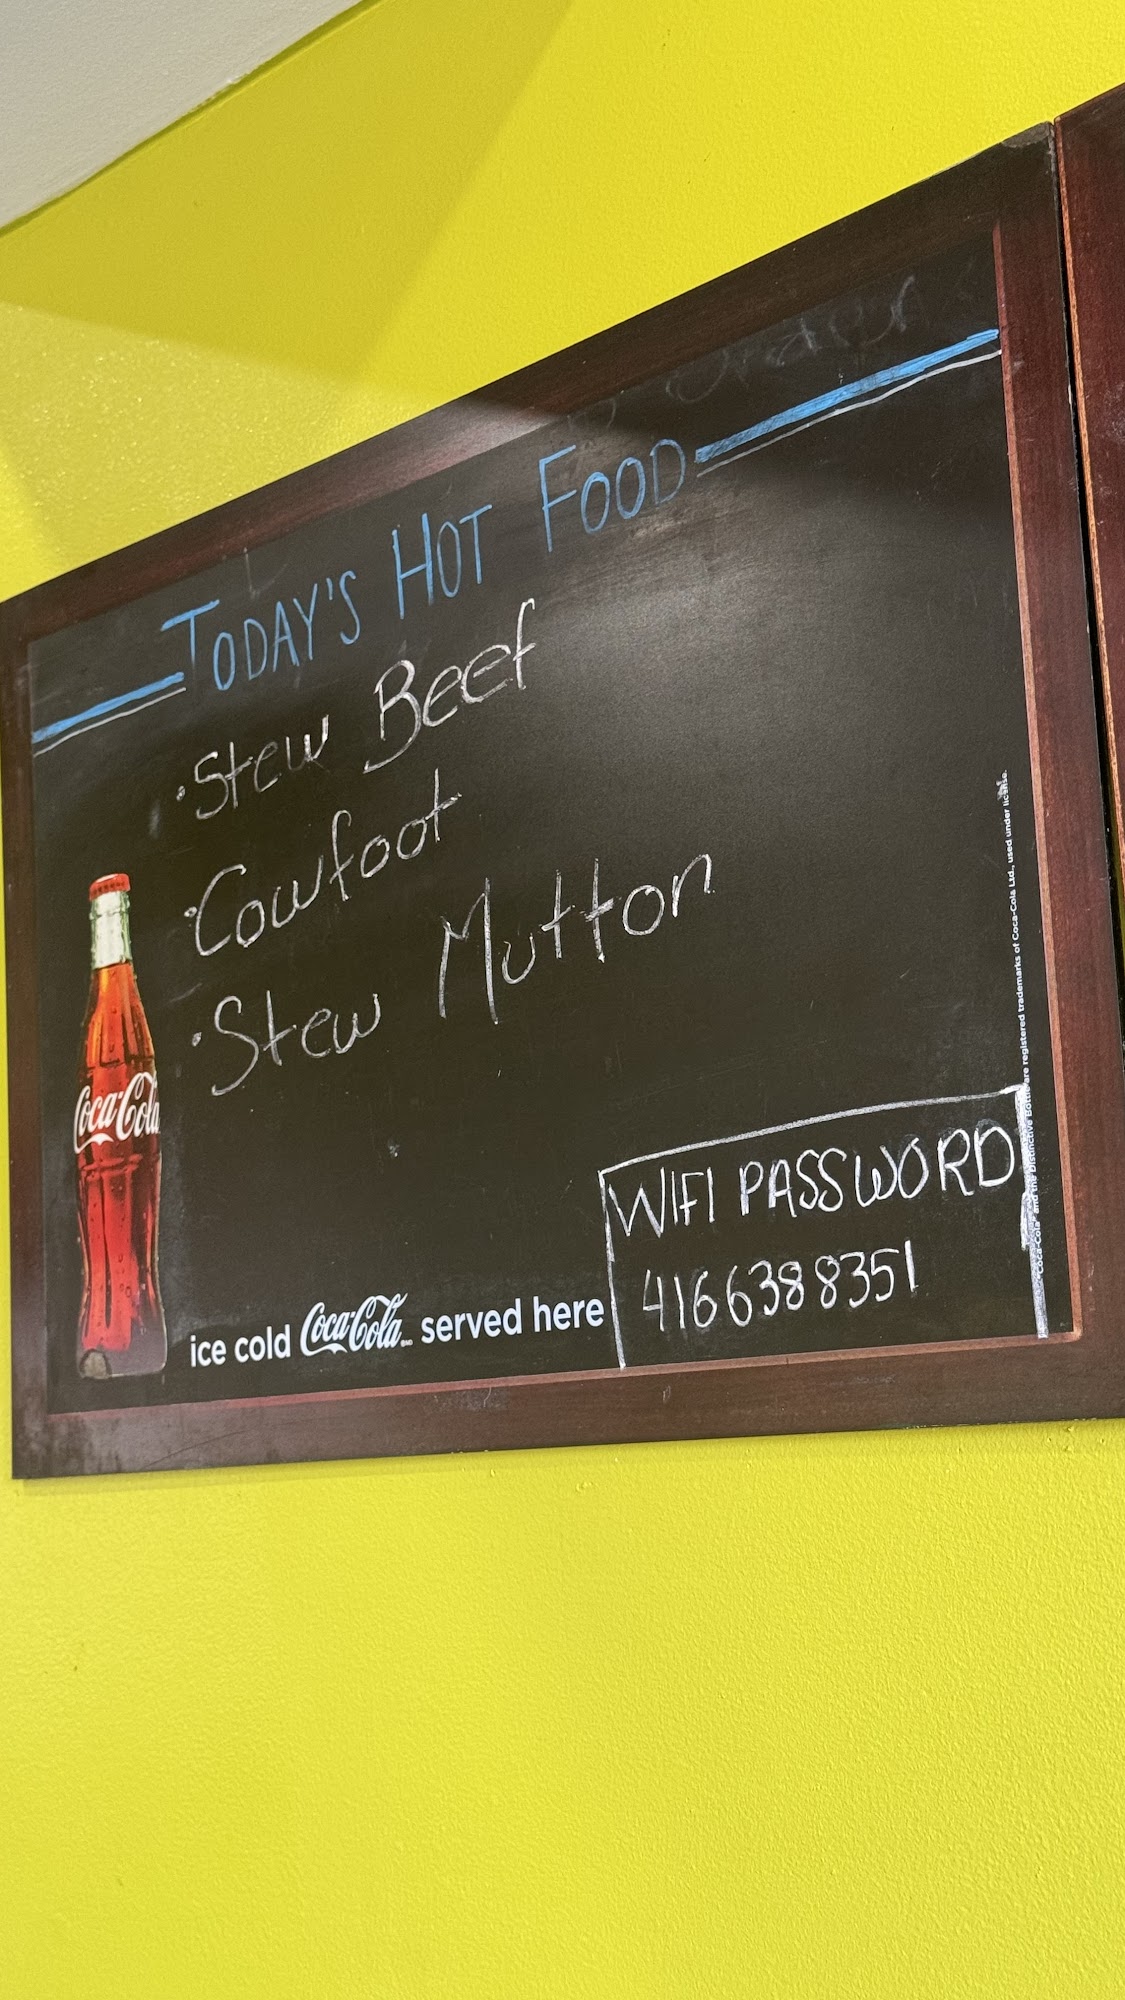 TODAY'S HOT FOOD
·Stew Beef
·Cowfoot
·Stew Mutton
Coca-Cola
WIFI PASSWORD
4166388351
ice cold Coca-Cola served here
"Coca-Cola" and the Distinctive Bottle are registered trademarks of Coca-Cola Ltd., used under license.